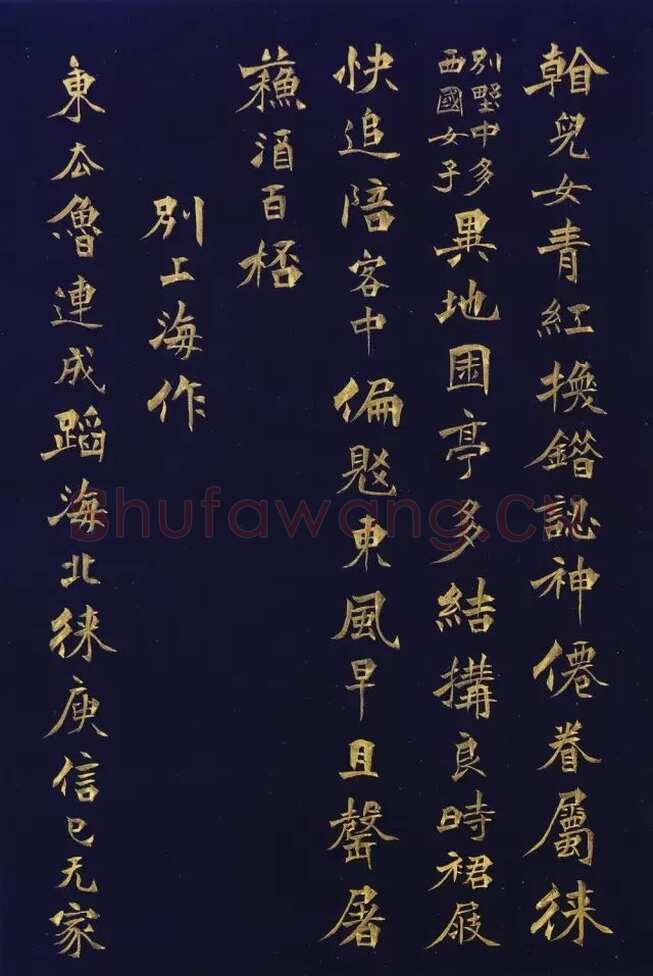 兒女青紅換錯認神僊眷屬徠
別墅中多
西國女子
異地園亭多結構良時裙屐
快追陪客中偏東風早且罄屠
蘓酒百桮
別上海作
東去魯連成蹈海北徠庾信已无家
Shufawang.CN